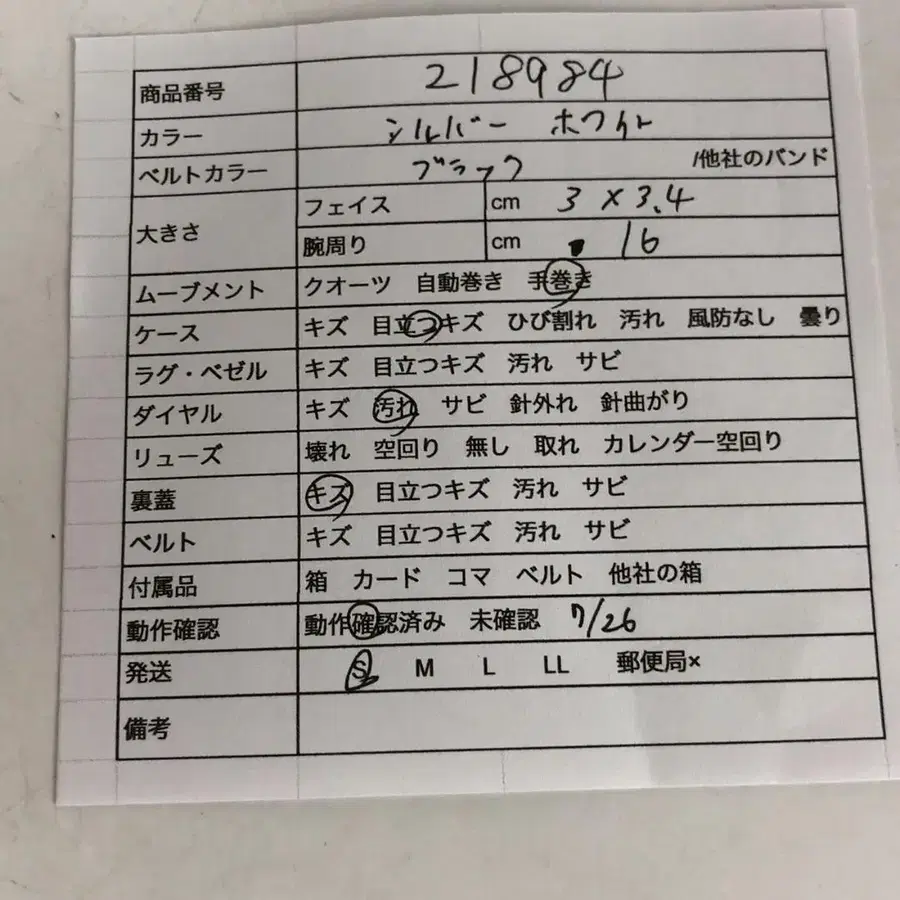 商品番号 218984
カラー シルバー ホワイト
ベルトカラー ブラック /他社のバンド
大きさ フェイス cm 3×3.4
腕周り cm 16
ムーブメント クオーツ 自動巻き 手巻き
ケース キズ 目立つキズ ひび割れ 汚れ 風防なし 曇り
ラグ・ベゼル キズ 目立つキズ 汚れ サビ
ダイヤル キズ 汚れ サビ 針外れ 針曲がり
リューズ 壊れ 空回り 無し 取れ カレンダー空回り
裏蓋 キズ 目立つキズ 汚れ サビ
ベルト キズ 目立つキズ 汚れ サビ
付属品 箱 カード コマ ベルト 他社の箱
動作確認 動作確認済み 未確認 7/26
発送 S M L LL 郵便局×
備考